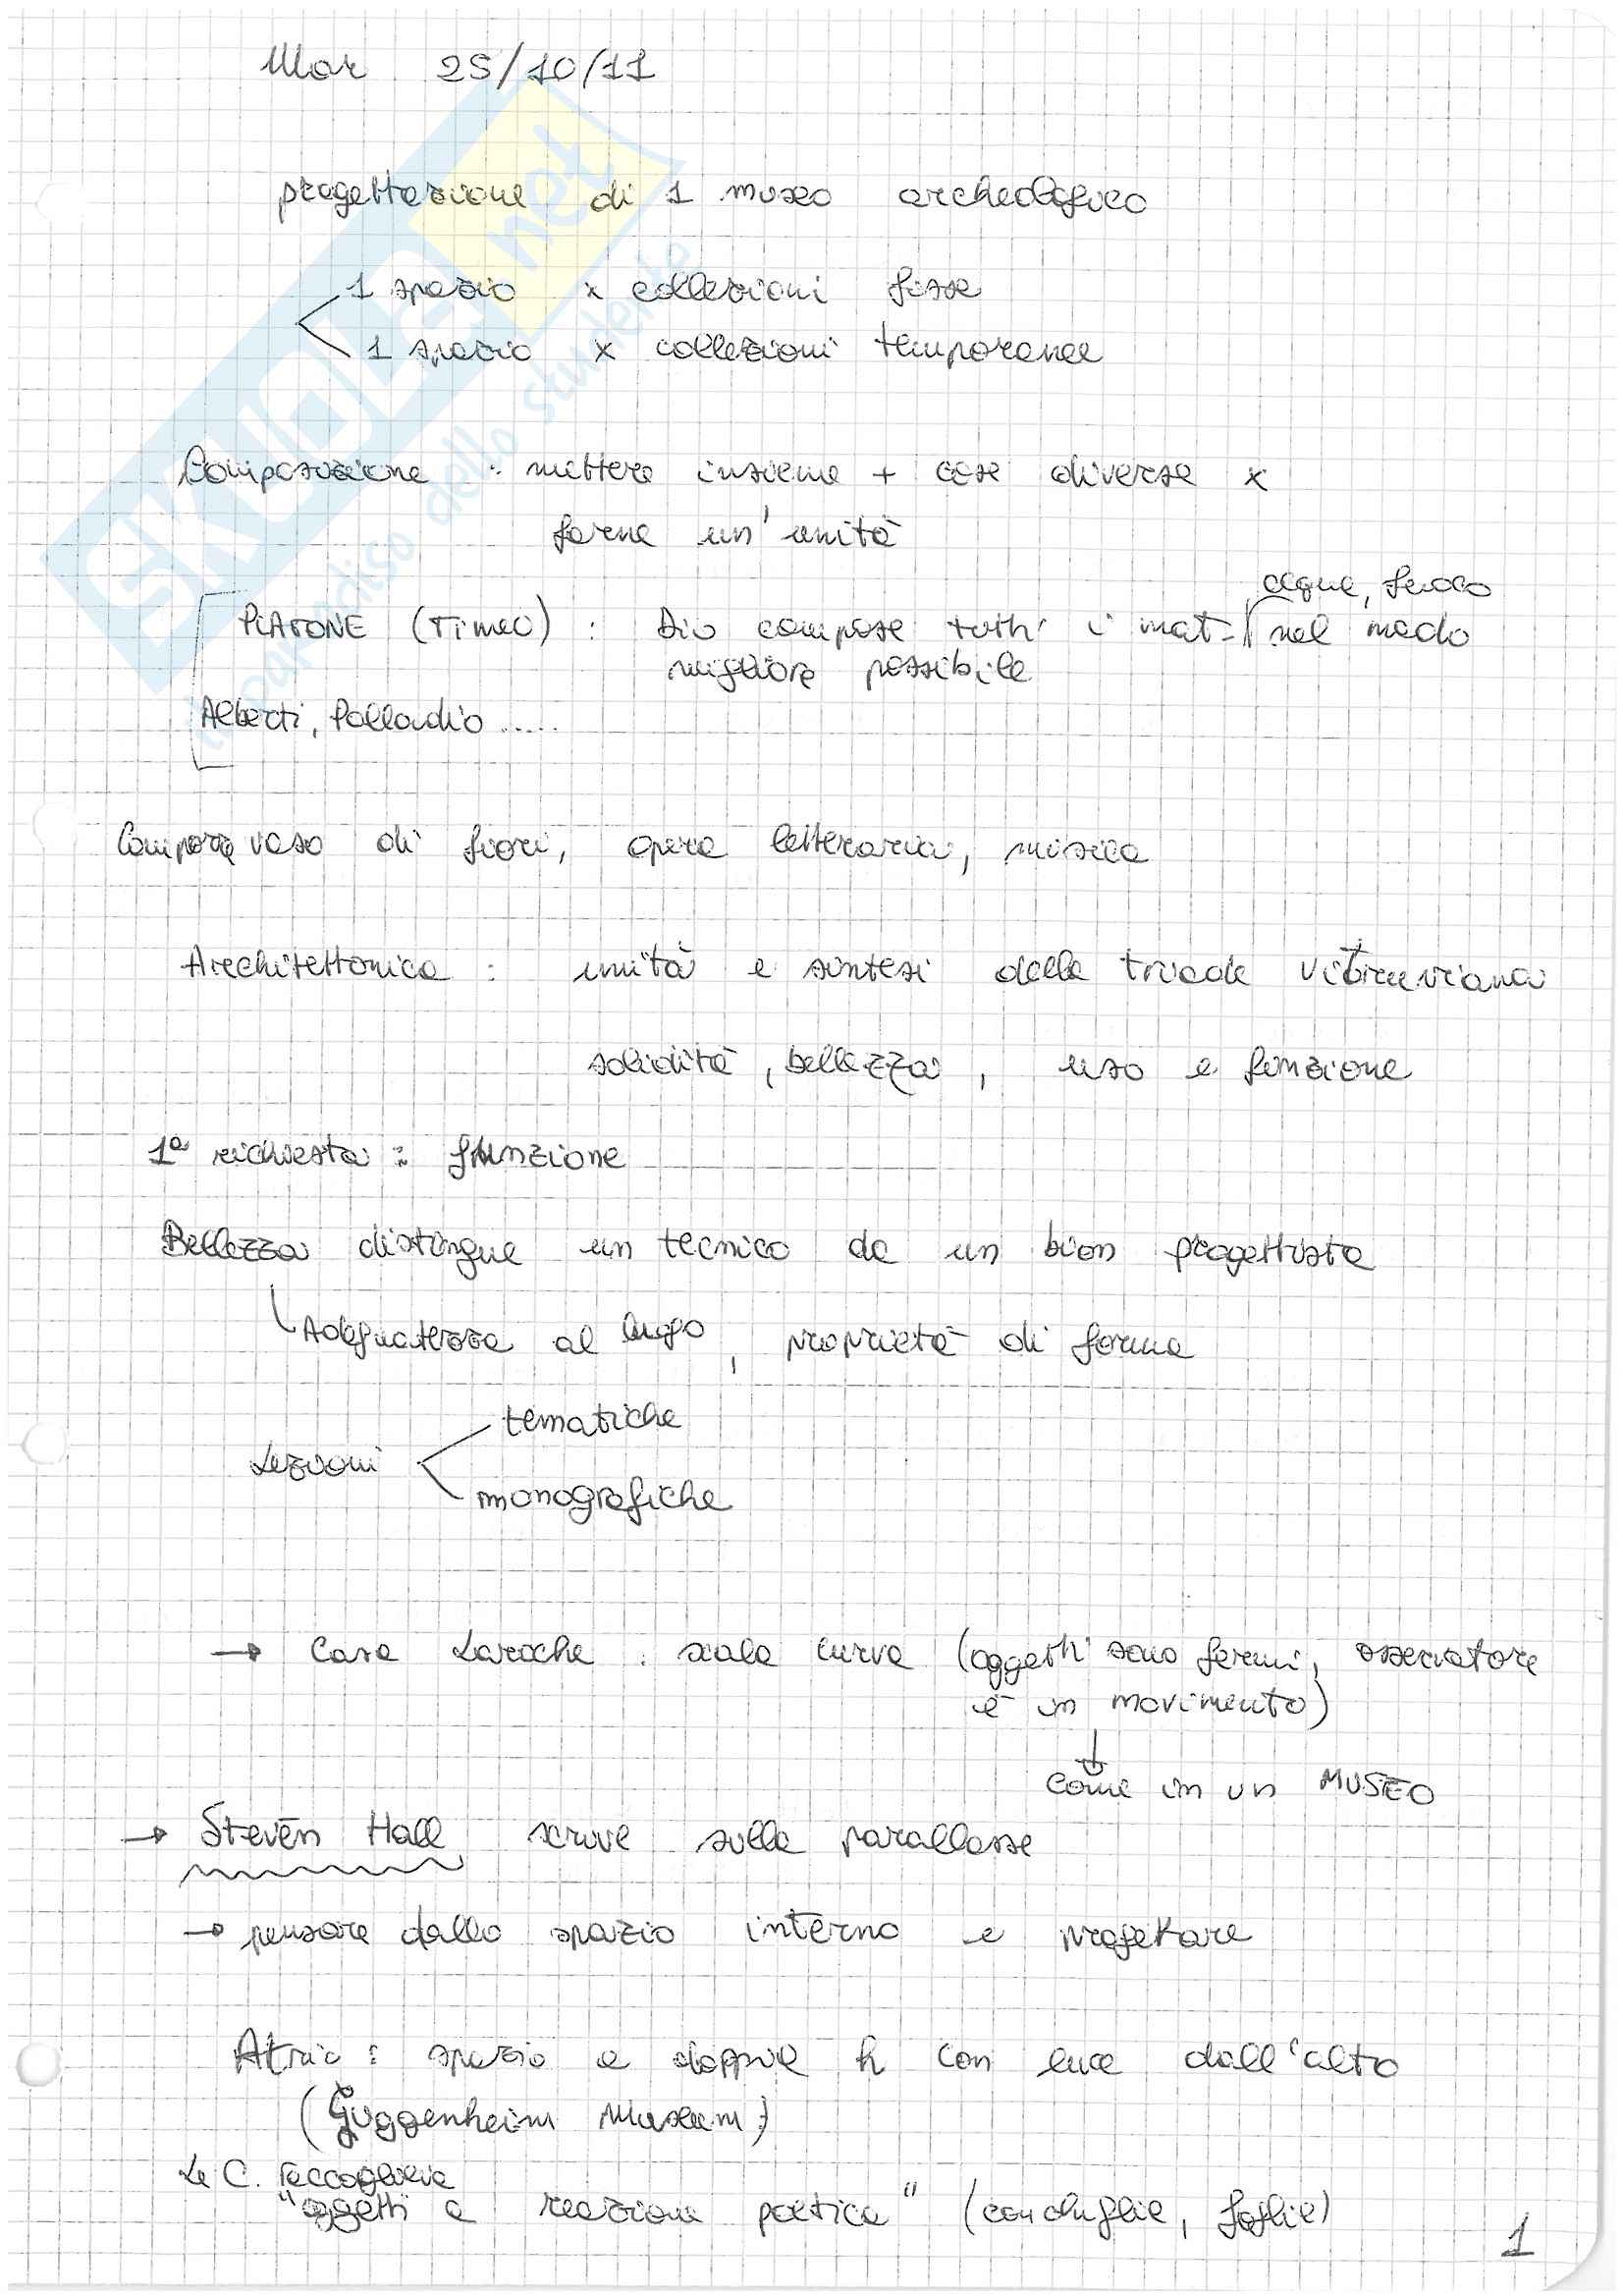 Mar 25/10/11
progettazione di 1 museo archeologico
1 spazio x collezioni fisse
1 spazio x collezioni temporanee
Composizione : mettere insieme + cose diverse x
farne un'unità
acqua, fuoco
PLATONE (Timeo) : Dio compose tutti i mat. nel modo
migliore possibile
Alberti, Palladio .....
Comporre vaso di fiori, opera letteraria, musica
Architettonica : unità e sintesi della triade vitruviana
solidità, bellezza, uso e funzione
1ª richiesta : funzione
Bellezza distingue un tecnico da un buon progettista
Adeguatezza al luogo, proprietà di forma
tematiche
Lezioni
monografiche
→ Casa Laroche : scala curva (oggetti sono fermi, osservatore
è in movimento)
↓
come in un MUSEO
→ Steven Hall scrive sulla parallasse
→ pensare dallo spazio interno e progettare
Atrio : spazio a doppia h con luce dall'alto
(Guggenheim Museum)
Le C. raccoglieva
"oggetti a reazione poetica" (conchiglie, foglie)
1
SKUOLA.net
il paradiso dello studente